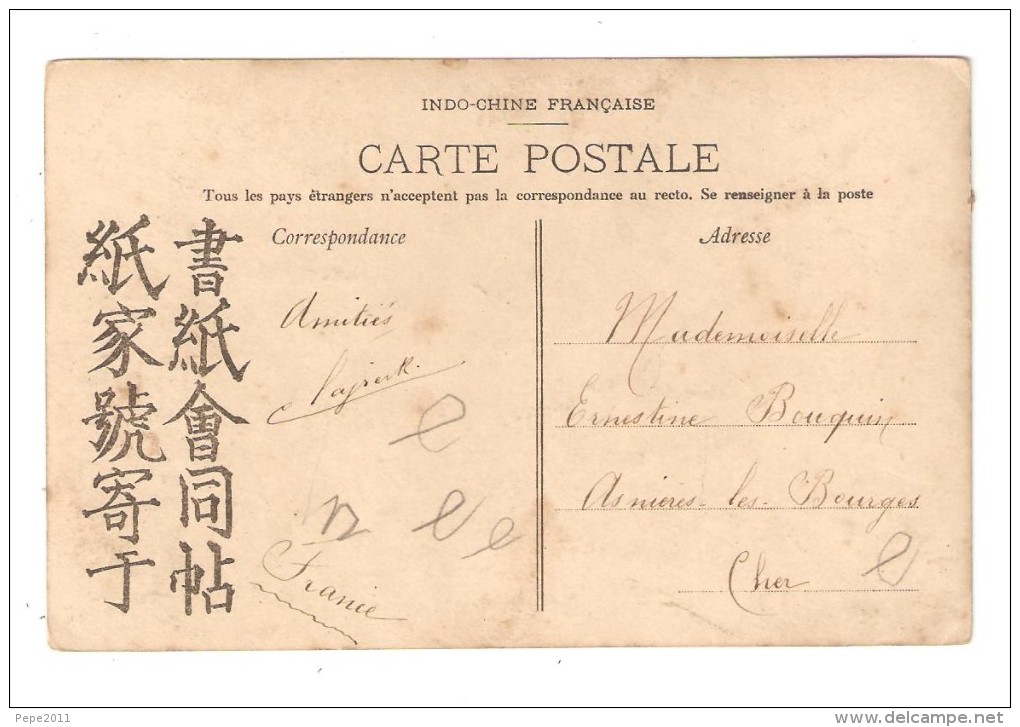 INDO-CHINE FRANÇAISE
CARTE POSTALE
Tous les pays étrangers n'acceptent pas la correspondance au recto. Se renseigner à la poste
書紙會同帖
紙家號寄于
Correspondance
Amitiés
France
Adresse
Mademoiselle
Ernestine Bouquin
Asnieres-les-Bourges
Cher
Pepe2011
www.delcampe.net